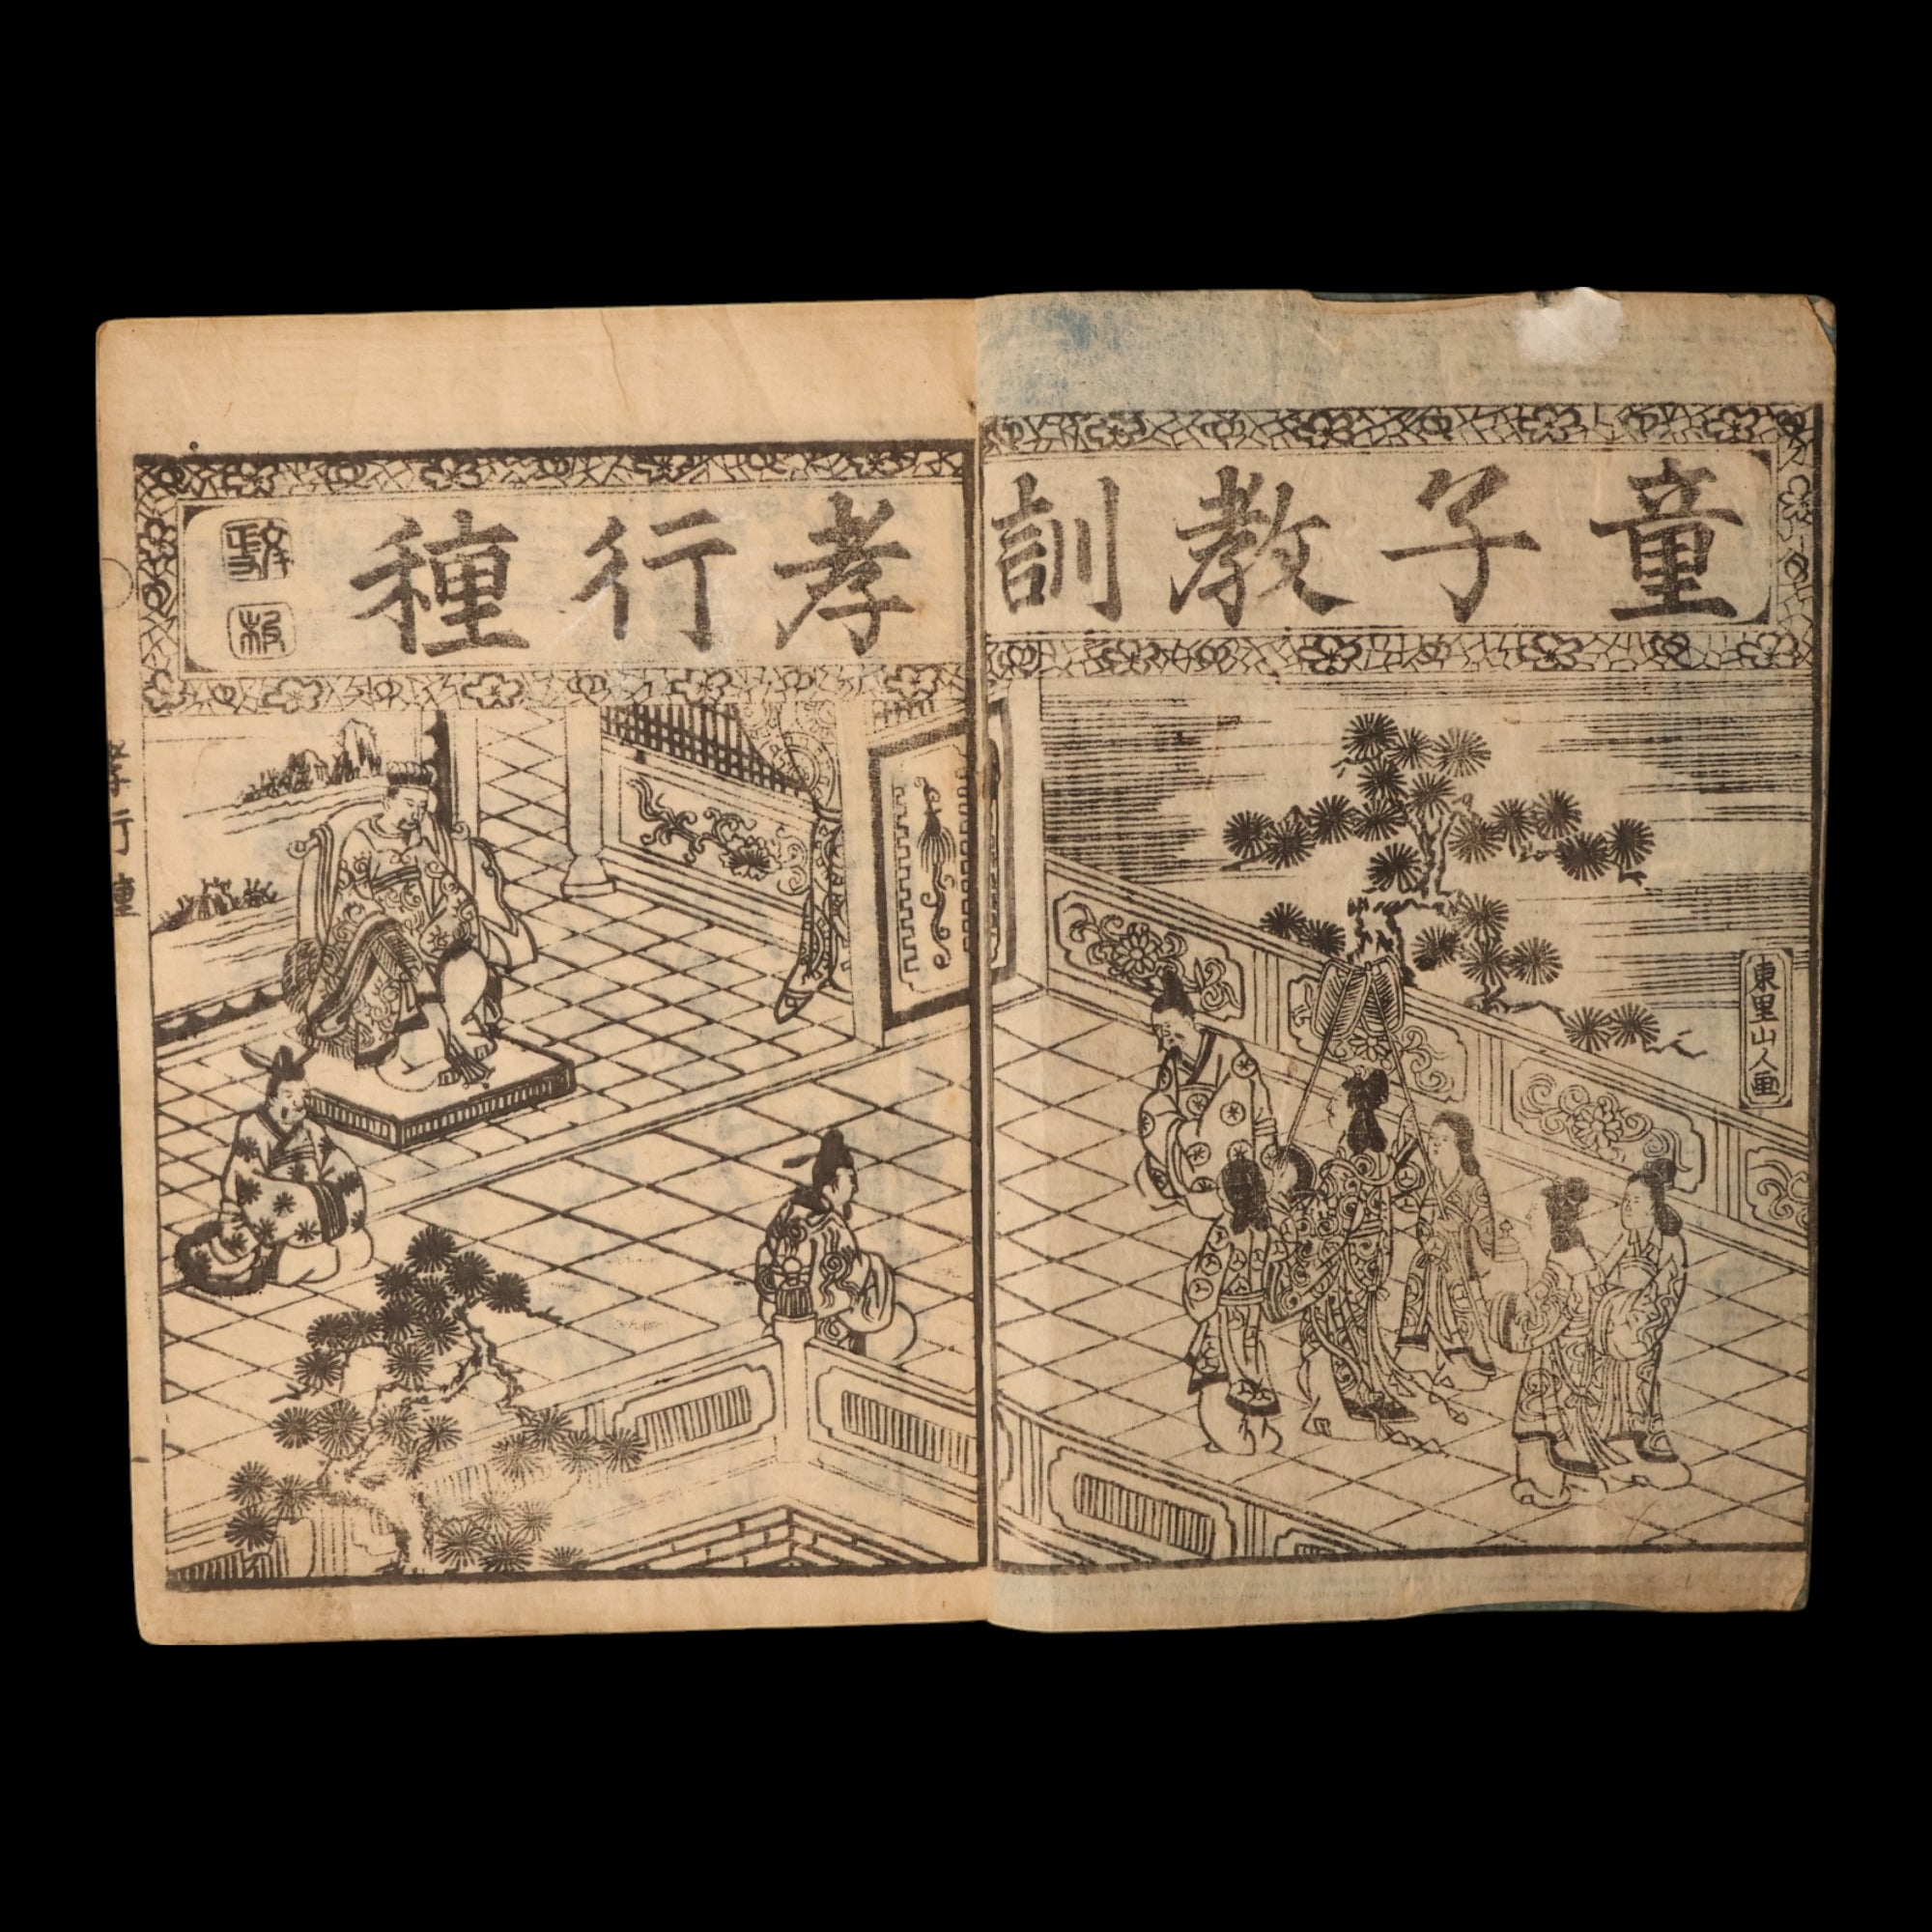 童子教訓
孝行種
東里山人画
孝行種